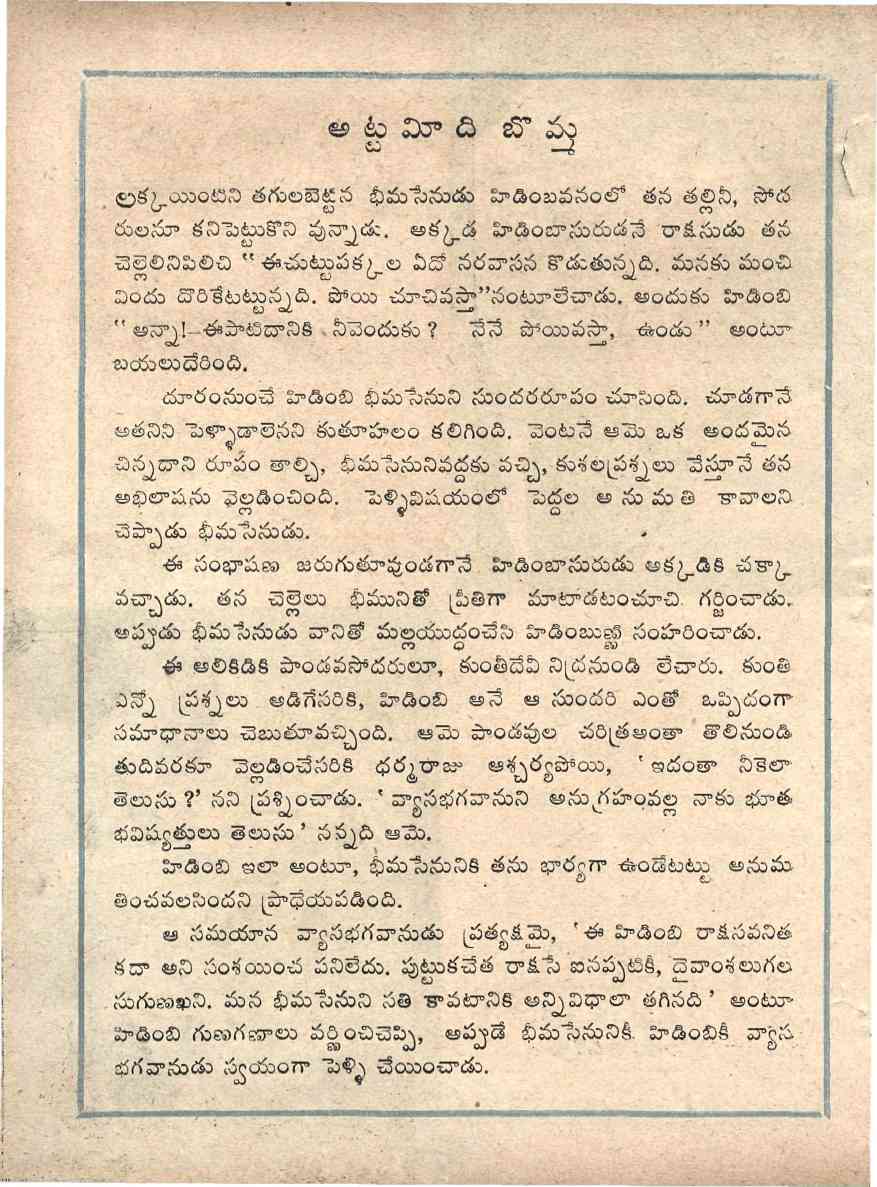 అట్టమీది బొమ్మ
లక్కయింటిని తగులబెట్టిన భీమసేనుడు హిడింబవనంలో తన తల్లినీ, సోద
రులనూ కనిపెట్టుకొని వున్నాడు. అక్కడ హిడింబాసురుడనే రాక్షసుడు తన
చెల్లెలినిపిలిచి “ఈచుట్టుపక్కల ఏదో నరవాసన కొడుతున్నది. మనకు మంచి
విందు దొరికేటట్టున్నది. పోయి చూచివస్తా”నంటూలేచాడు. అందుకు హిడింబి
“అన్నా!-ఈపాటిదానికి నీవెందుకు? నేనే పోయివస్తా, ఉండు” అంటూ
బయలుదేరింది.
దూరంనుంచే హిడింబి భీమసేనుని సుందరరూపం చూసింది. చూడగానే
అతనిని పెళ్ళాడాలెనని కుతూహలం కలిగింది. వెంటనే ఆమె ఒక అందమైన
చిన్నదాని రూపం తాల్చి, భీమసేనునివద్దకు వచ్చి, కుశలప్రశ్నలు వేస్తూనే తన
అభిలాషను వెల్లడించింది. పెళ్ళివిషయంలో పెద్దల అనుమతి కావాలని
చెప్పాడు భీమసేనుడు.
ఈ సంభాషణ జరుగుతూవుండగానే హిడింబాసురుడు అక్కడికి చక్కా
వచ్చాడు. తన చెల్లెలు భీమునితో ప్రీతిగా మాటాడటంచూచి గర్జించాడు.
అప్పుడు భీమసేనుడు వానితో మల్లయుద్ధంచేసి హిడింబుణ్ణి సంహరించాడు.
ఈ అలికిడికి పాండవసోదరులూ, కుంతీదేవీ నిద్రనుండి లేచారు. కుంతి
ఎన్నో ప్రశ్నలు అడిగేసరికి, హిడింబి అనే ఆ సుందరి ఎంతో ఒప్పిదంగా
సమాధానాలు చెబుతూవచ్చింది. ఆమె పాండవుల చరిత్రఅంతా తొలినుండి
తుదివరకూ వెల్లడించేసరికి ధర్మరాజు ఆశ్చర్యపోయి, ‘ఇదంతా నీకెలా
తెలుసు?’ నని ప్రశ్నించాడు. ‘వ్యాసభగవానుని అనుగ్రహంవల్ల నాకు భూత
భవిష్యత్తులు తెలుసు’ నన్నది ఆమె.
హిడింబి ఇలా అంటూ, భీమసేనునికి తను భార్యగా ఉండేటట్టు అనుమ
తించవలసిందని ప్రాధేయపడింది.
ఆ సమయాన వ్యాసభగవానుడు ప్రత్యక్షమై, ‘ఈ హిడింబి రాక్షసవనిత
కదా అని సంశయించ పనిలేదు. పుట్టుకచేత రాక్షసే ఐనప్పటికీ, దైవాంశలుగల
సుగుణఖని. మన భీమసేనుని సతి కావటానికి అన్నివిధాలా తగినది’ అంటూ
హిడింబి గుణగణాలు వర్ణించిచెప్పి, అప్పుడే భీమసేనునికీ హిడింబికీ వ్యాస
భగవానుడు స్వయంగా పెళ్ళి చేయించాడు.